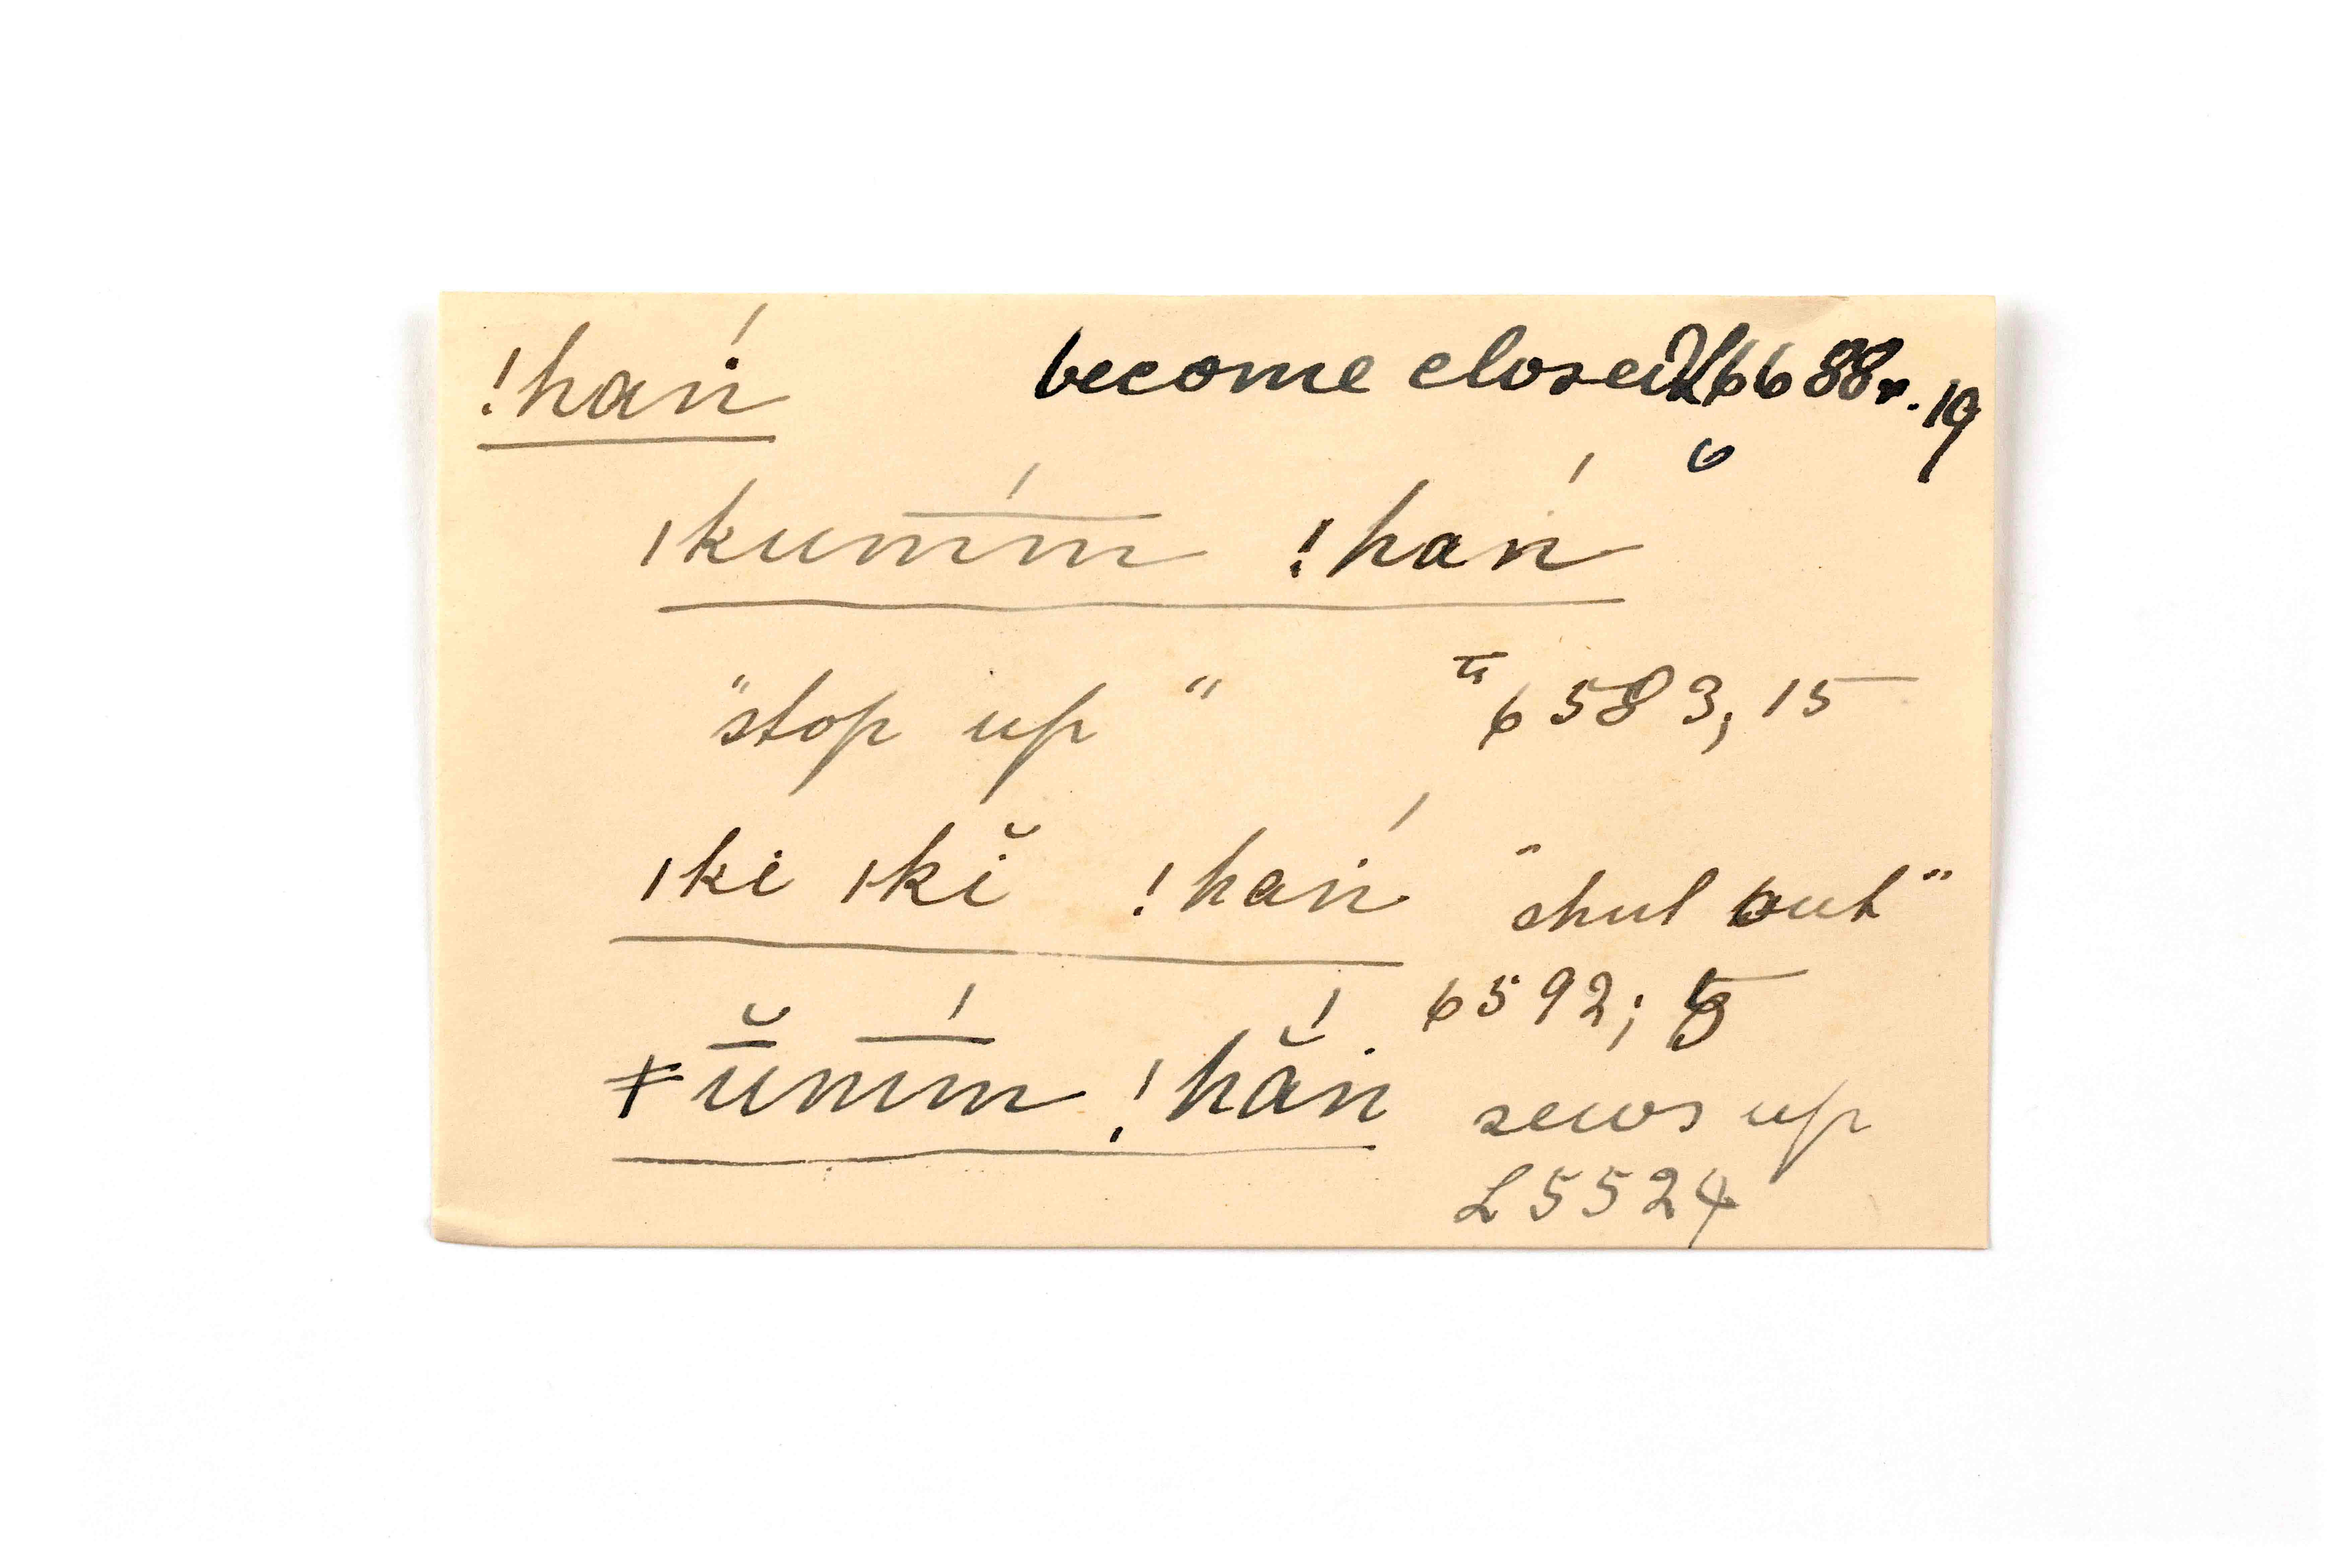 !haṅ́ become closed L6688r.19
ǀkum̅́m̅ !haṅ́
"stop up" 6583, 15
ǀki ǀkĭ !haṅ́ "shut out"
6592; 5
ǂŭ̅m̅́m !hăṅ́ sews up
L5524